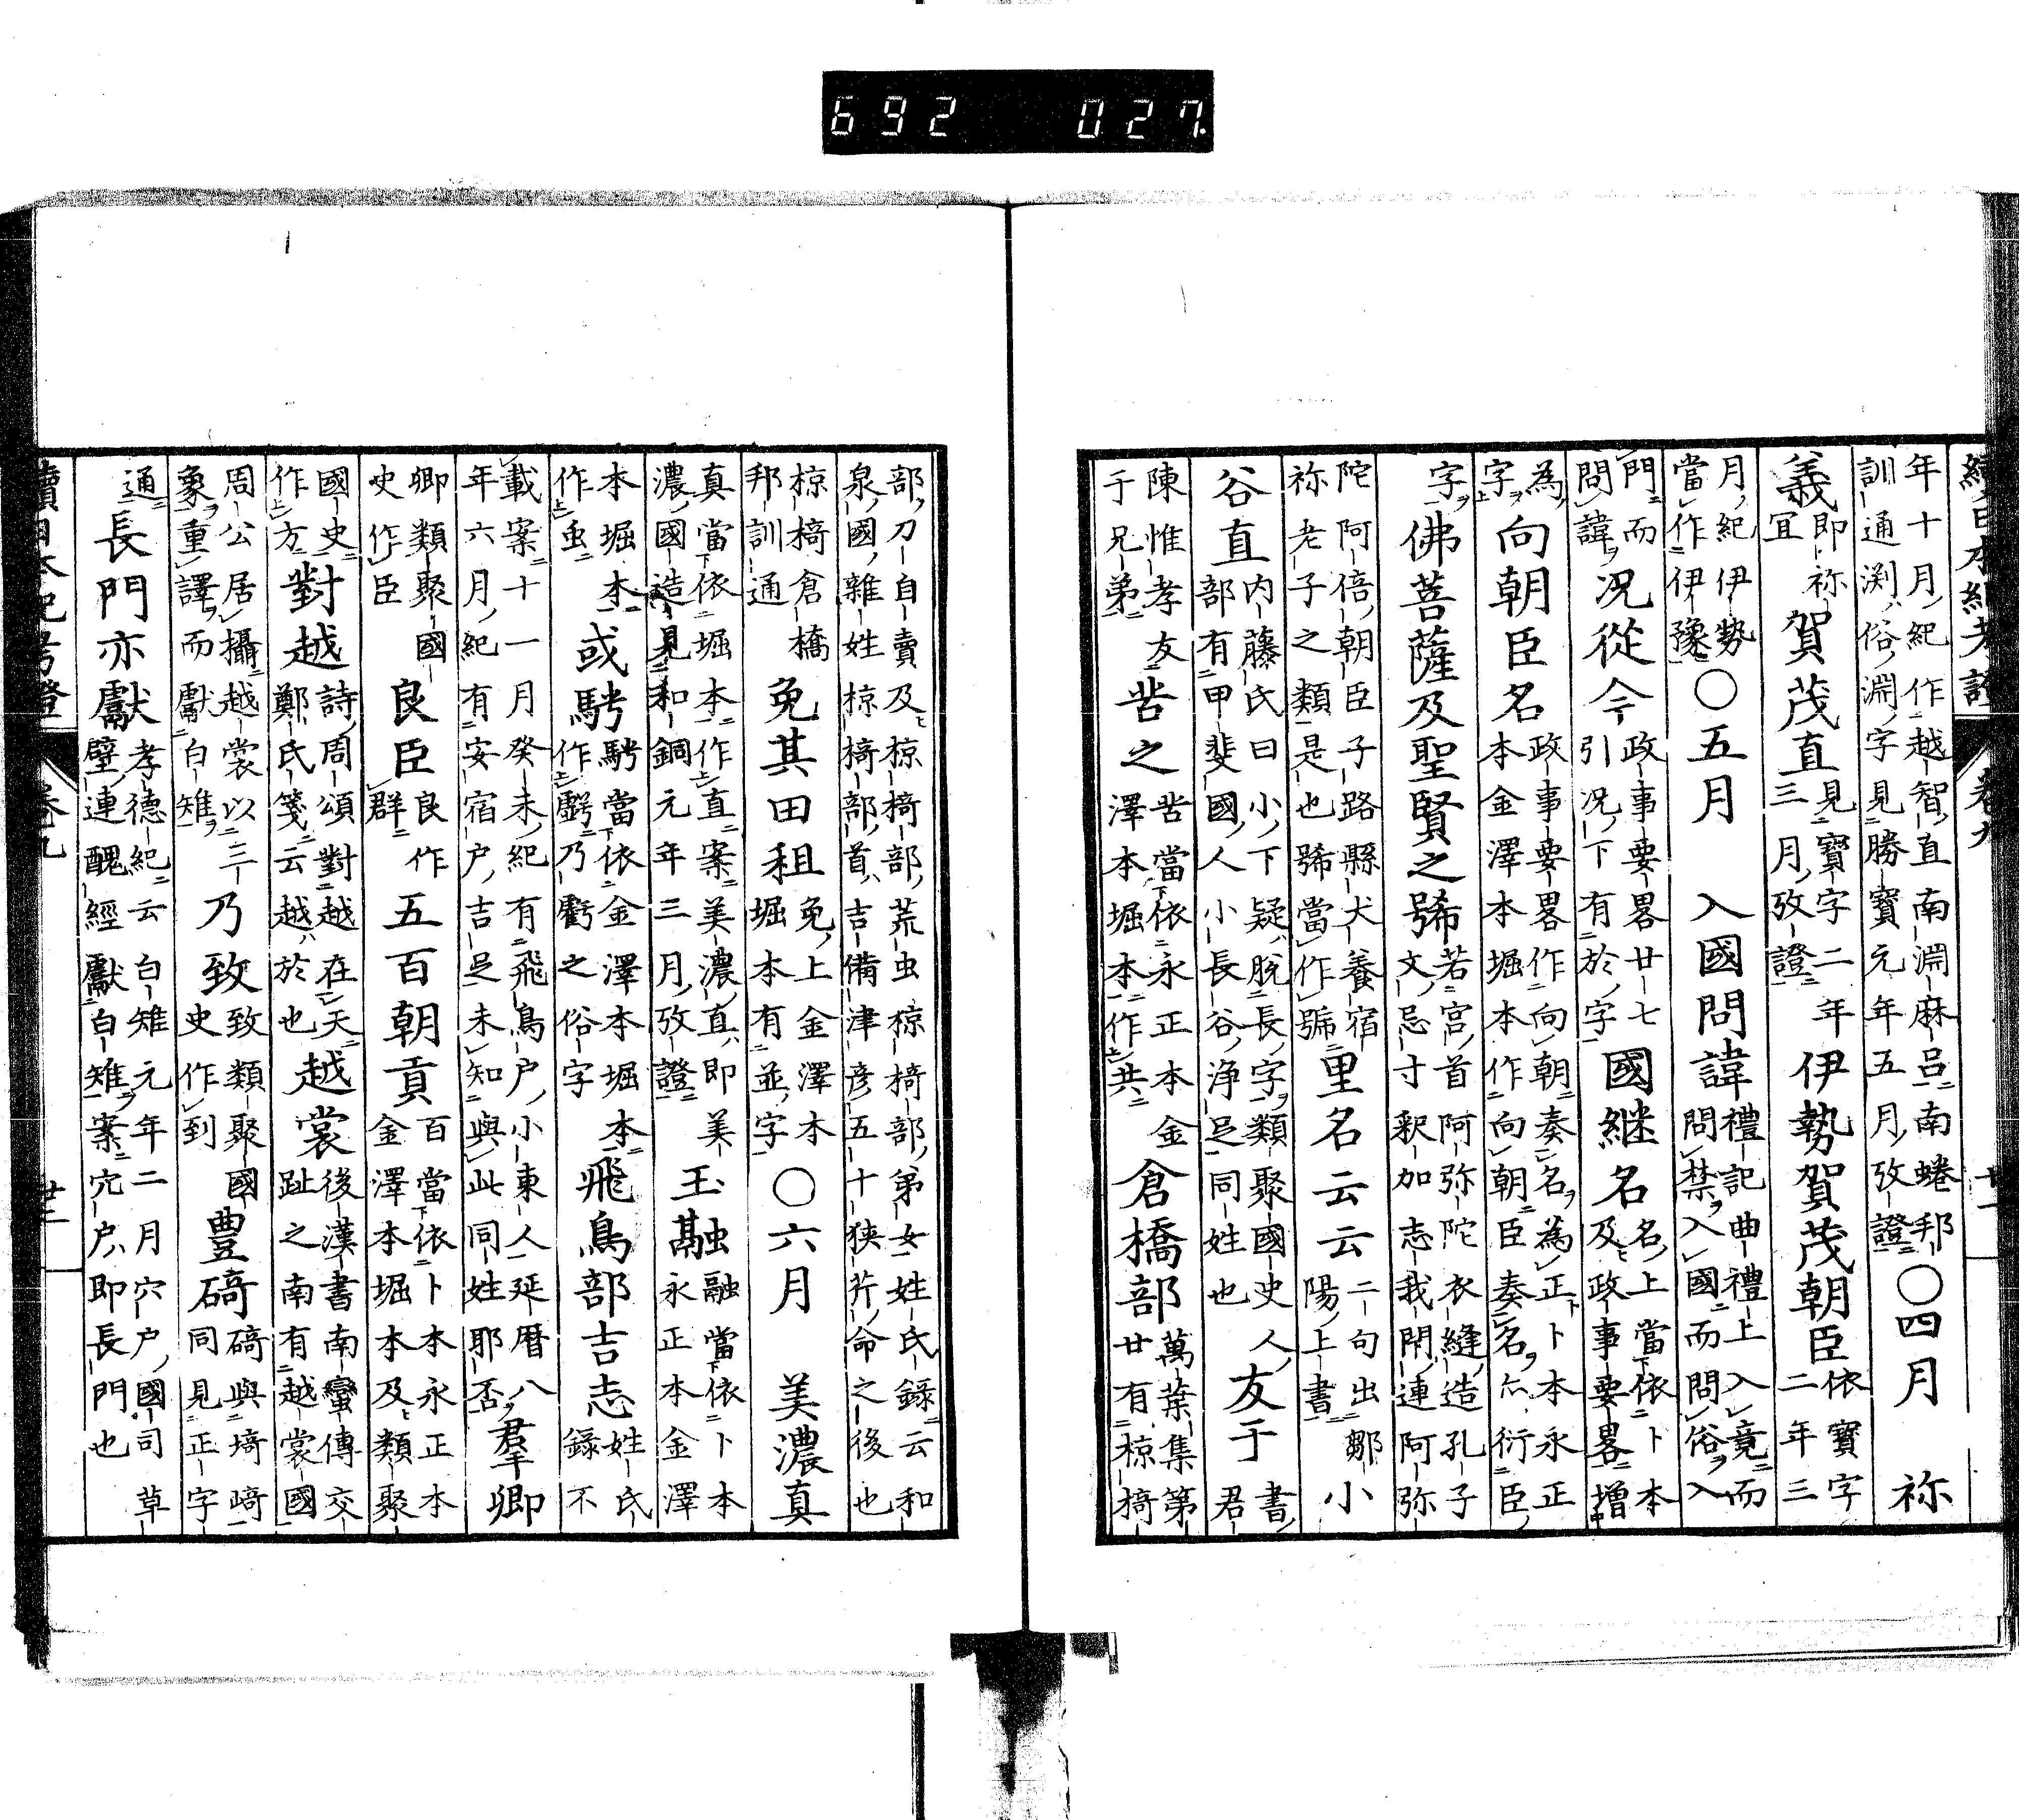 692 027.
年十月紀作越智直南淵麻呂南蜷邦〇四月 祢
訓通渕俗淵字見勝寶元年五月攷證
義即祢宜 賀茂直見寶字二年三月攷證 伊勢賀茂朝臣依寶字二年三
月紀伊勢當作伊豫〇五月 入國問諱禮記曲禮上入竟而問禁入國而問俗入
門而問諱況從今政事要畧廿七引況下有於字國継名名上當依卜本及政事要畧增
為字向朝臣名政事要畧作向朝奏名為正卜本永正本金澤本堀本作向朝臣奏名今衍臣
字佛菩薩及聖賢之號若宮首阿弥陀衣縫造孔子文忌寸釈加志我閇連阿弥
陀阿倍朝臣子路縣犬養宿祢老子之類是也號當作號里名云云二句出鄒陽上書小
谷直内藤氏曰小下疑脱長字類聚國史人部有甲斐國人小長谷浄足同姓也 友于書君
陳惟孝友于兄弟苦之苦當依永正本金澤本堀本作共倉橋部萬葉集第廿有椋椅
部刀自賣及椋椅部荒虫椋椅部弟女姓氏録云和泉國雜姓椋椅部首吉備津彦五十狭芹命之後也
椋椅倉橋邦訓通 免其田租免上金澤本堀本有並字〇六月 美濃真
真當依堀本作直案美濃直即美濃國造見和銅元年三月攷證 玉勘融當依卜本永正本金澤
本堀本作虫或騁騁當依金澤本堀本作虧乃虧之俗字飛鳥部吉志姓氏録不
載案十一月癸未紀有飛鳥戶小東人延暦八年六月紀有安宿戶吉足未知與此同姓耶否羣卿
卿類聚國史作臣 良臣良作群五百朝貢百當依卜本永正本金澤本堀本及類聚
國史作方對越詩周頌對越在天鄭氏箋云越於也越裳後漢書南蠻傳交趾之南有越裳國
周公居攝越裳以三象重譯而獻白雉 乃致致類聚國史作到 豊碕碕與埼﨑同見正字
通 長門亦獻孝德紀云白雉元年二月穴戶國司草壁連醜經獻白雉案穴戶即長門也